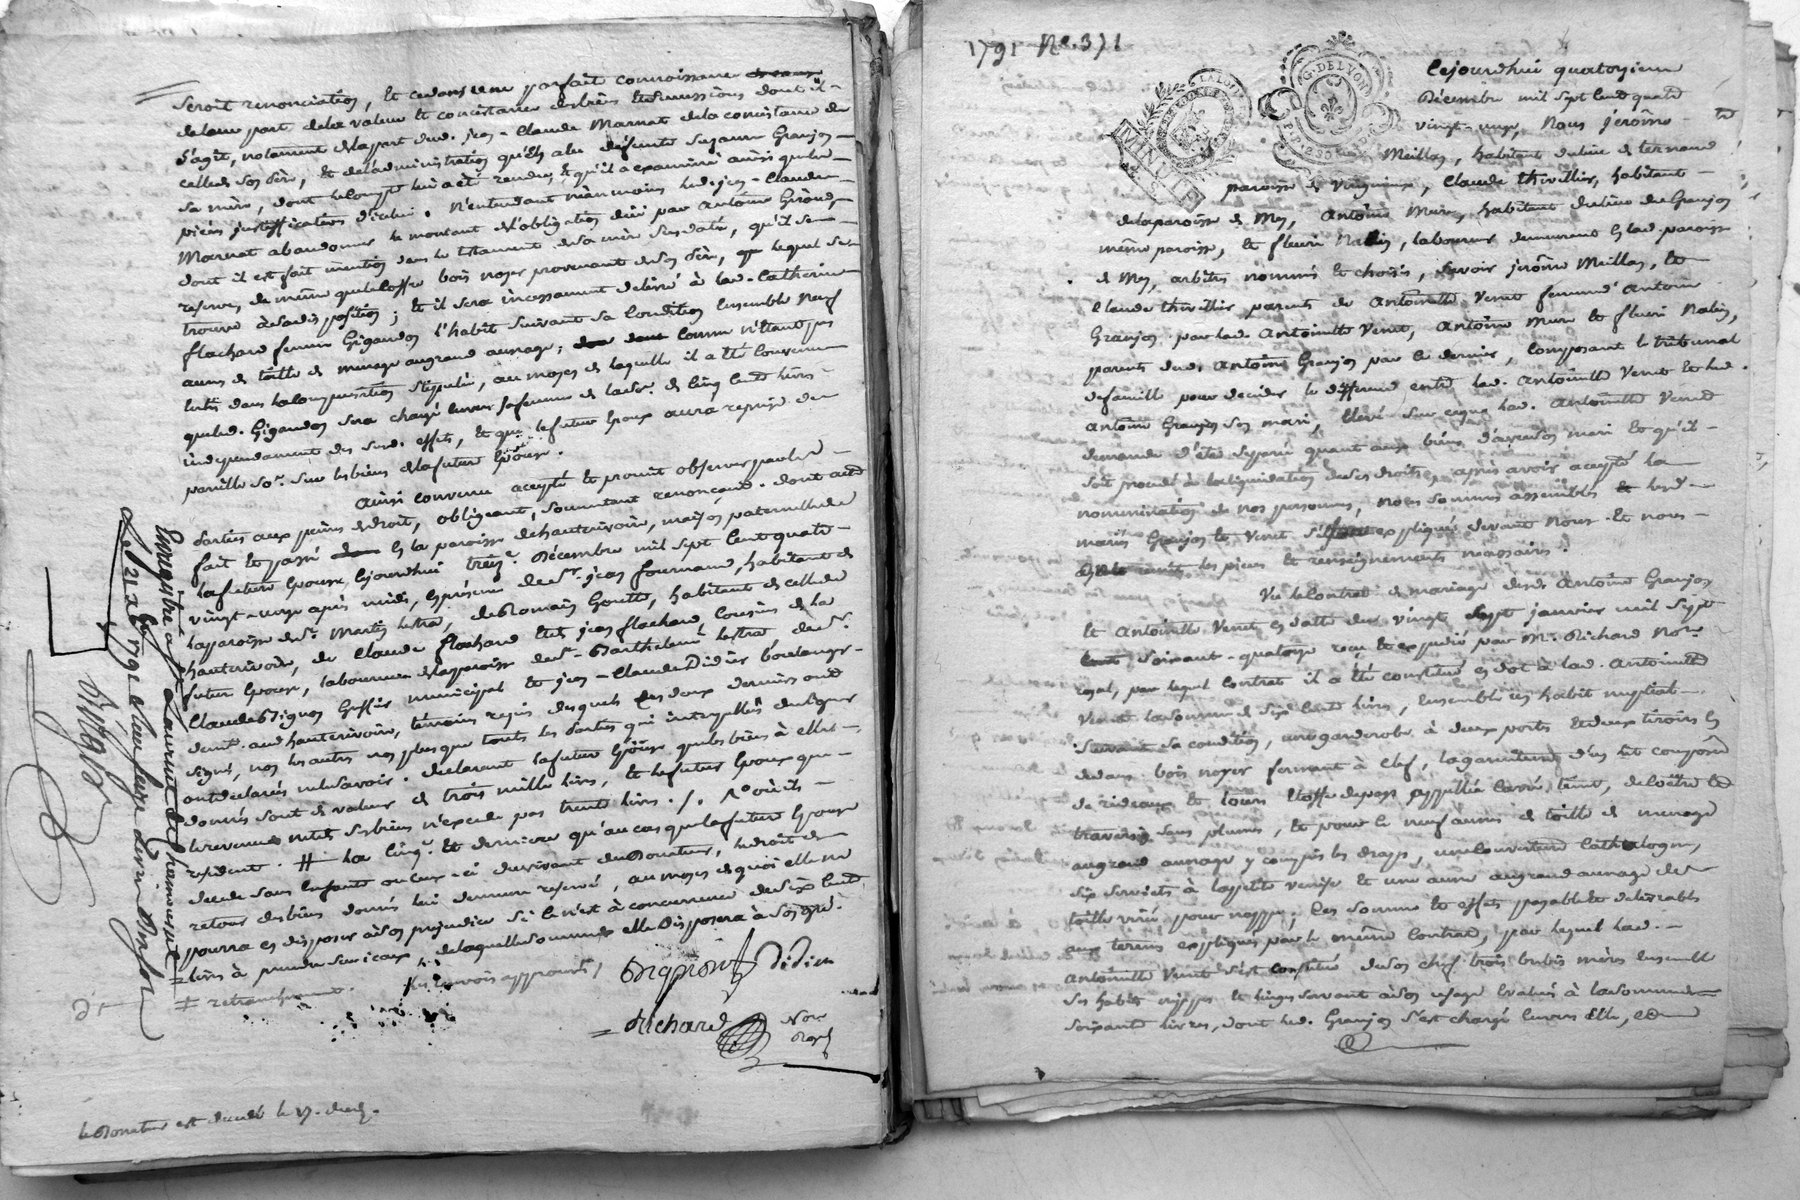 seroit renonciation, et ce dans une parfait connoissance
de leur part de la valeur et consistance desbiens et successions dont il
s'agit, notament de la part dud. jean-Claude Marnat de la consistance de
celle de son père, et de l'administration qu'en a eu deffunte Suzanne Granjon
sa mère, dont le compte lui a été rendu, et qu'il a examiné ainsi que les
pièces justifficatives d'icelui. N'entendant néanmoins led. jean-Claude
Marnat abandonner le montant de l'obligation düe par antoine Girond,
dont il est fait mention dans le testament de sa mère susdaté, qu'il se
reserve, de même que le coffre bois noyer provenant de son père, lequel se
trouve à sa disposition; et il sera incessament delivré à lad. Catherine
flachard femme Gigandon l'habit suivant sa condition ensemble neuf
aunes de toille de menage au grand aunage; comme n'étant pas
entrés dans la composition stipulée, au moyen de laquelle il a été convenu
que led. Gigandon sera chargé envers sa femme de lad. so.e de cinq cents livres
independament des susd. effets, et que le futur Epoux aura reprise de
pareille so.e sur les biens de la future Epouse.
ainsi convenu accepté et promit observer par les
parties aux peines de droit, obligeant, soumetant renonçant. dont acte
fait et passé en la paroisse de hauterivoire, maison paternelle de
la future Epouse, cejourd'hui treize Décembre mil sept cent quatre
vingt-onze après midi, en présence de s.r jean fournand, habitant de
la paroisse de S.t Martin lestra, de Romain Goutte, habitant de celle de
hauterivoire, de Claude flachard et de jean flachard cousins de la
futur Epouse, laboureurs de la paroisse de S.t Barthelemi lestra, de s.r
Claude Bignon Greffier municipal et jean-Claude Didier boulanger
dem.t aud. hauterivoire, témoins requis desquels les deux derniers ont
signé, non les autres non plus que toutes les parties qui interpellées de signer
ont declarés ne le savoir. declarant la future Epouse que les biens à elle
donnés sont de valeur de trois mille livres, et le futur Epoux que
le revenu net de ses biens n'excede pas trente livres. /. N° où ils
resident. # la cinq.e et derniere qu'au cas que la future Epouse
decede sans enfants ou ceux-ci du vivant du Donateur, le droit de
retour desbiens donnés lui demeure reservé, au moyen de quoi elle ne
pourra en disposer à son prejudice si ce n'est à concurrence de six cents
livres à prendre sur iceux de laquelle somme elle disposera à son gré.
≠ retranchement. les renvois approuvés /
Bignon Gff Didier
Richard No.re Royal
le Donateur est decedé le
1791 N° 371
MINUTE
LA LOI
G. DE LYON
Cejourd'hui quatorzieme
Décembre mil sept cent quatre
vingt-onze, Nous jerôme
Meillan, habitant du lieu de ternand
paroisse de Virigneux, Claude thivillier, habitant
de la paroisse de Mey, antoine Mure, habitant du lieu de Granjon
même paroisse, et fleuri Nalin, laboureur demeurant en lad. paroisse
de Mey, arbitres nommés et choisis, savoir jerôme Meillan, et
Claude thivillier parents de antoinette Venet femme d'antoine
Granjon par lad. antoinette Venet, antoine Mure et fleuri Nalin,
parents dud. antoine Granjon par ce dernier, composant le tribunal
de famille pour decider le differend entre lad. antoinette Venet et led.
antoine Granjon son mari, élevé sur ce que lad. antoinette Venet
demande d'être separé quant aux biens d'avec son mari et qu'il
soit procedé à la liquidation de ses droits, après avoir accepté la
nomination de nos personnes, nous sommes assemblés et lesd.
mariés Granjon et Venet se sont expliqués devant nous et nous
ont remit les pieces et renseignements necessaires.
Vu le contrat de mariage desd. antoine Granjon
et antoinette Venet en datte du vingt sept janvier mil sept
cent soixante-quatorze reçu et expédié par M.e Richard No.re
royal, par lequel contrat il a été constitué en dot à lad. antoinette
Venet la somme de six cents livres, ensemble un habit nuptial
suivant sa condition, une garderobe à deux portes et deux tiroirs en
dedans bois noyer fermant à clef, la garniture d'un lit composée
de rideaux et tours etoffe de pays appellée cordé, teint, de loêtre et
traversin sans plumes, et pour le neuf aunes de toille de menage
au grand aunage y compris les draps, une couverture Cathalogne,
six serviets à la petite venise et une aune au grand aunage de
toille vriée pour nappe; ces somme et effets payables et delivrables
aux termes expliqués par le même contrat, par lequel lad.
antoinette Venet s'est constitué de son chef trois brebis mères ensemble
ses habits nippes et linges servant à son usage evalués à la somme de
soixante livres, dont led. Granjon s'est chargé envers elle, et